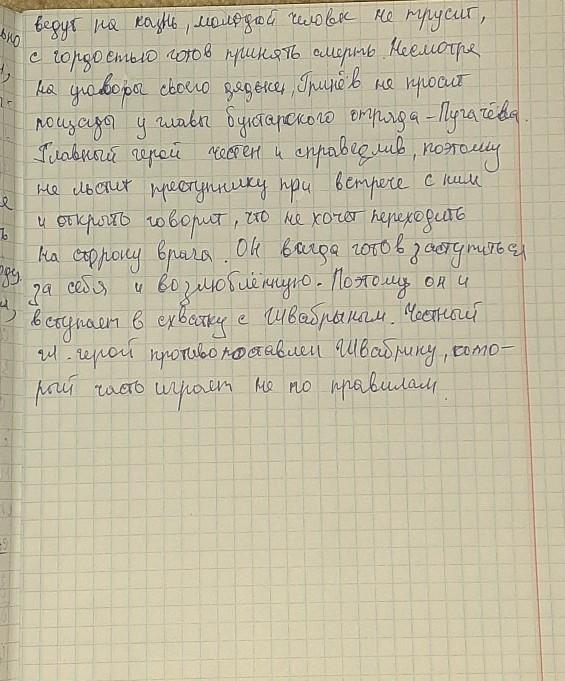 ведут на казнь, молодой человек не трусит,
с гордостью готов принять смерть. Несмотря
на уговоры своего дядьки, Гринёв не просит
пощады у главы бунтарского отряда - Пугачёва.
Главный герой честен и справедлив, поэтому
не льстит преступнику при встрече с ним
и открыто говорит, что не хочет переходить
на сторону врага. Он всегда готов заступиться
за себя и возлюблённую. Поэтому он и
вступает в схватку с Швабрыным. Честный
гл. герой противопоставлен Швабрину, кото-
рый часто играет не по правилам.